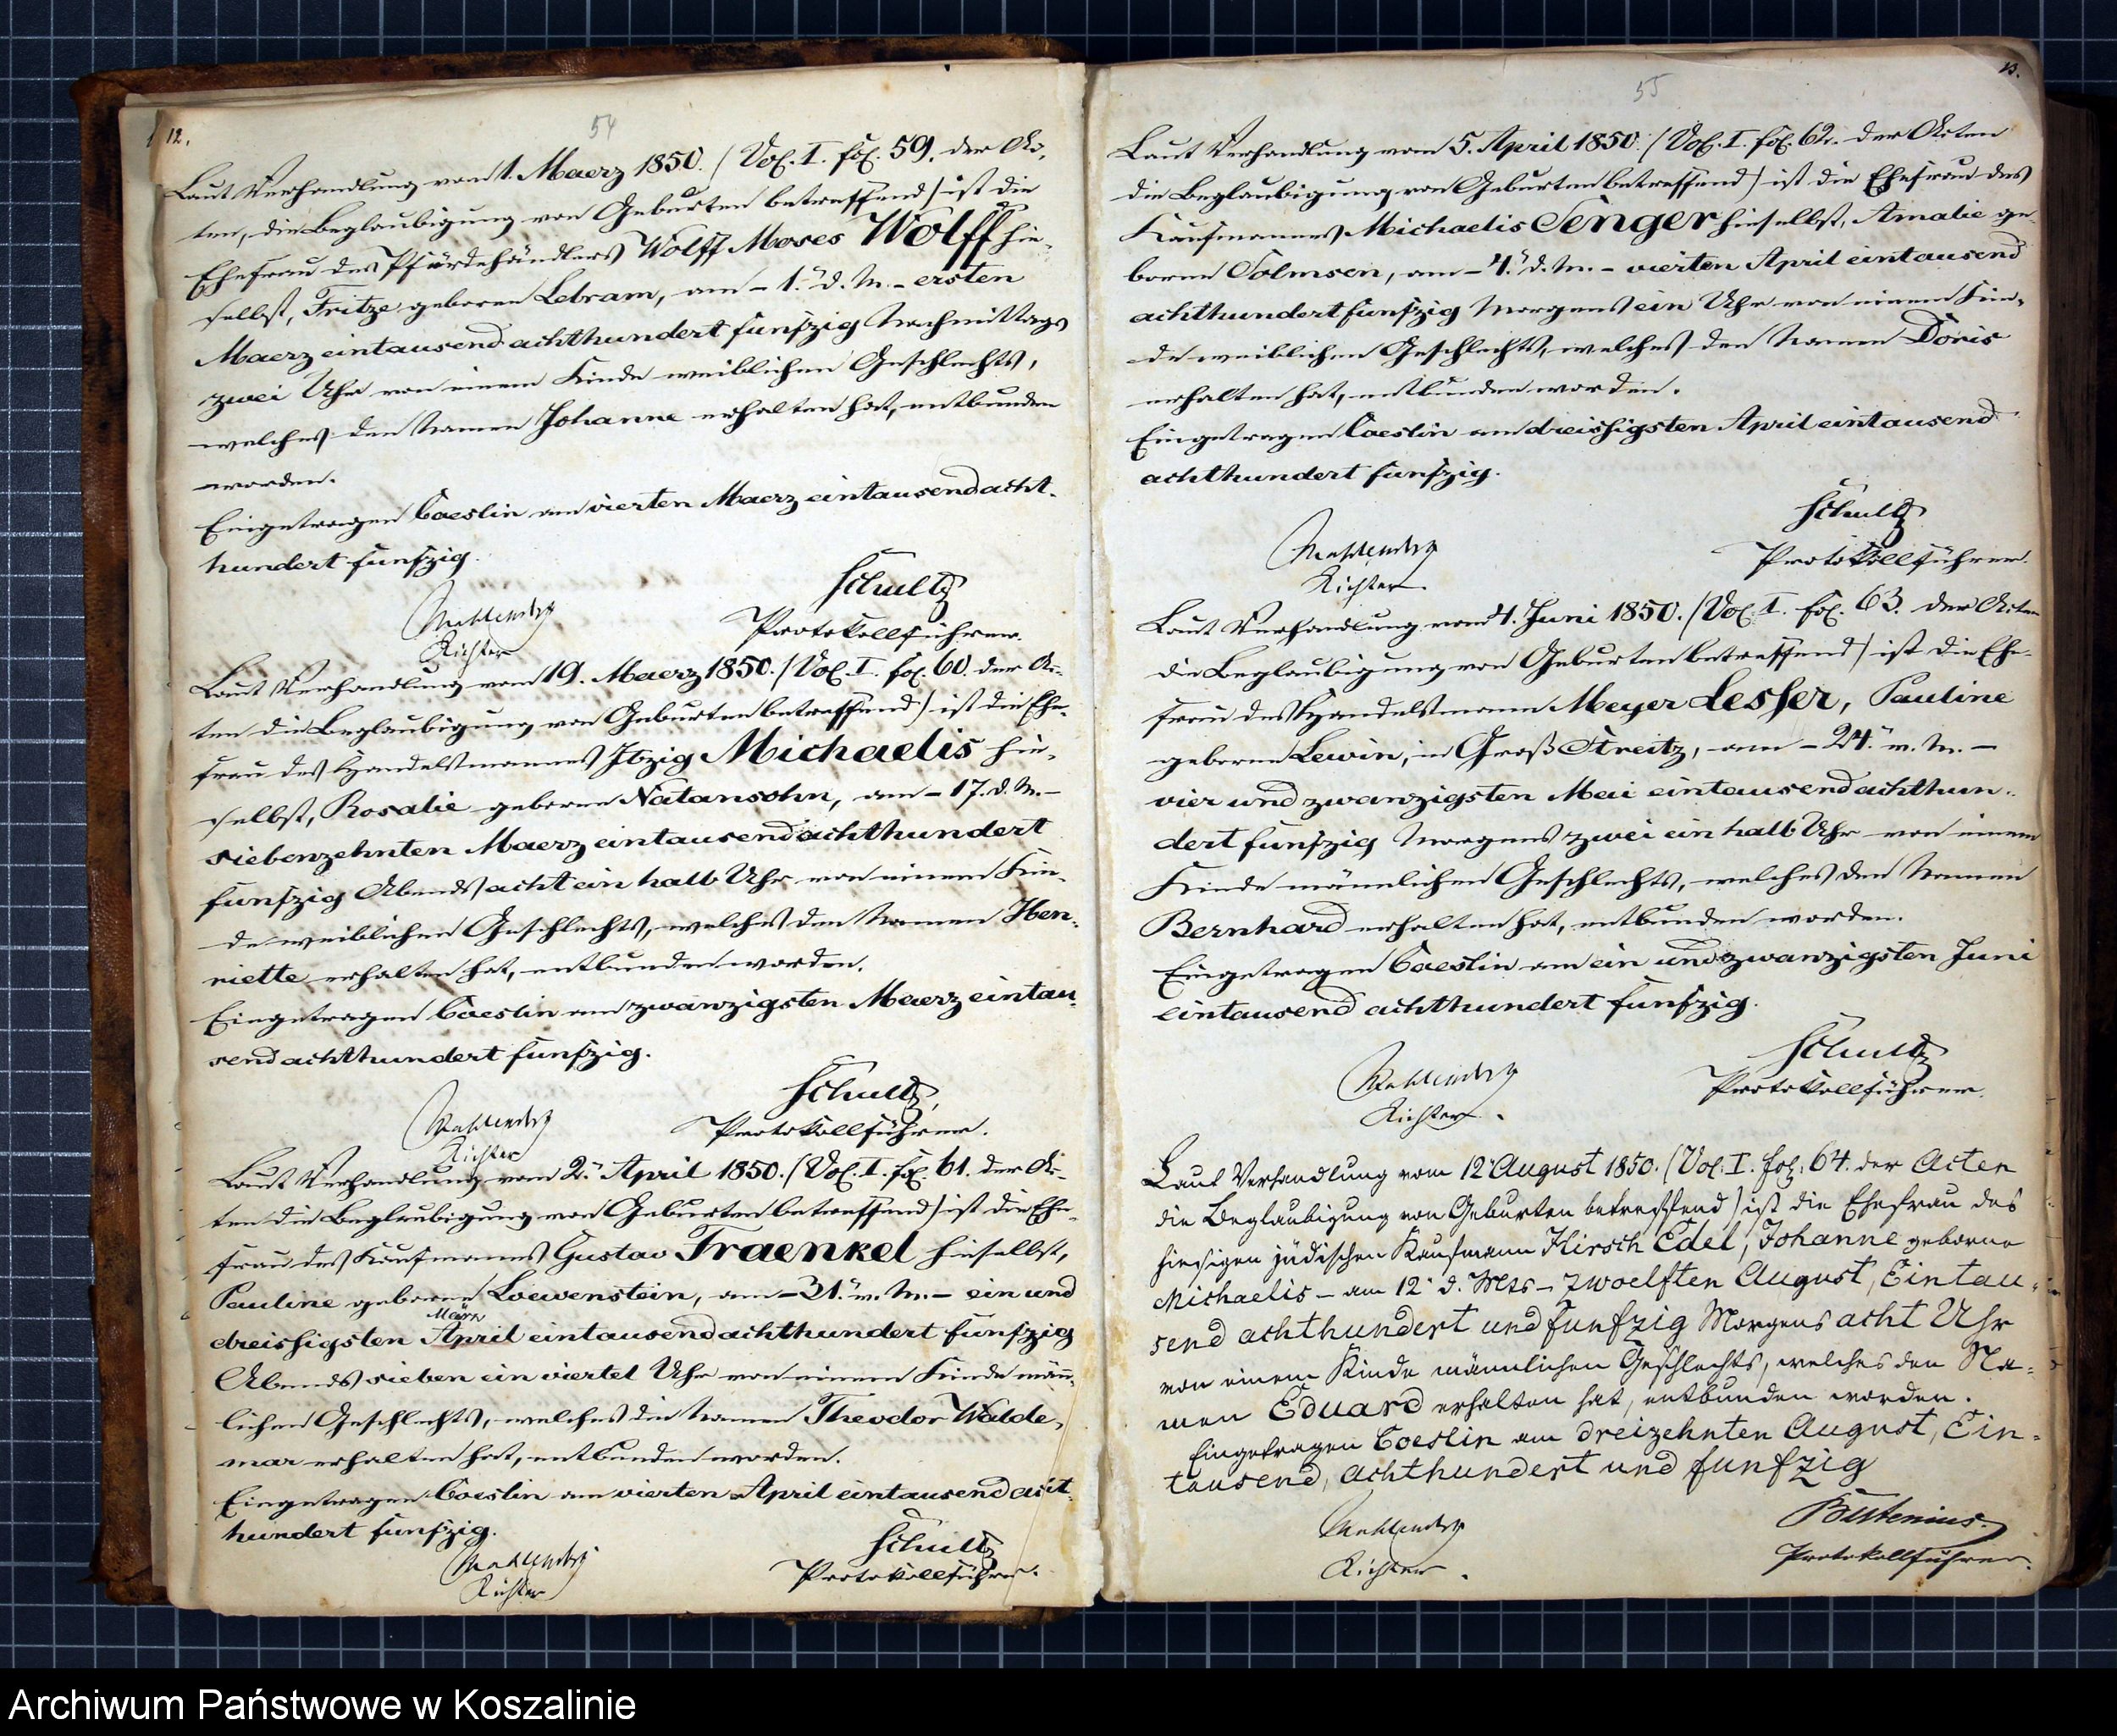 12.
54
Laut Verhandlung vom 1. Maerz 1850. (Vol. I. fol. 59. der Ac-
ten, die Beglaubigung von Geburten betreffend) ist die
Ehefrau des Pferdehändlers Wolff Moses Wolff hie-
selbst, Fritze geboren Lebram, am - 1. d. M. - ersten
Maerz eintausend achthundert funfzig Nachmittags
zwei Uhr von einem Kinde weiblichen Geschlechts,
welches den Namen Johanne erhalten hat, entbunden
worden.
Eingetragen Coeslin am vierten Maerz eintausend acht-
hundert funfzig.
Schultz
Protokollführer.
Richter
Laut Verhandlung vom 19. Maerz 1850. (Vol. I. fol. 60. der Ac-
ten die Beglaubigung von Geburten betreffend) ist die Ehe-
frau des Handelsmannes Itzig Michaelis hie-
selbst, Rosalie geborne Natansohn, am - 17. d. M. -
siebenzehnten Maerz eintausend achthundert
funfzig Abends acht ein halb Uhr von einem Kin-
de weiblichen Geschlechts, welches den Namen Hen-
riette erhalten hat, entbunden worden.
Eingetragen Coeslin am zwanzigsten Maerz eintau-
send achthundert funfzig.
Schultz,
Protokollführer.
Richter
Laut Verhandlung vom 2. April 1850. (Vol. I. fol. 61. der Ac-
ten die Beglaubigung von Geburten betreffend) ist die Ehe-
frau des Kaufmannes Gustav Fraenkel hieselbst,
Pauline geborne Loewenstein, am - 31. v. M. - ein und
März
dreissigsten April eintausend achthundert funfzig
Abends sieben ein viertel Uhr von einem Kinde männ-
lichen Geschlechts, welches den Namen Theodor Walde-
mar erhalten hat, entbunden worden.
Eingetragen Coeslin am vierten April eintausend acht-
hundert funfzig.
Schultz
Protokollführer.
Richter
13.
55
Laut Verhandlung vom 5. April 1850. (Vol. I. fol. 62. der Acten
die Beglaubigung von Geburten betreffend) ist die Ehefrau des
Kaufmannes Michaelis Senger hieselbst, Amalie ge-
borne Solmsen, am - 4. d. M. - vierten April eintausend
achthundert funfzig Morgens ein Uhr von einem Kin-
de weiblichen Geschlechts, welches den Namen Doris
erhalten hat, entbunden worden.
Eingetragen Coeslin am dreissigsten April eintausend
achthundert funfzig.
Schultz
Protokollführer.
Richter
Laut Verhandlung vom 4. Juni 1850. (Vol. I. fol. 63. der Acten
die Beglaubigung von Geburten betreffend) ist die Ehe-
frau des Handelsmann Meyer Lesser, Pauline
geborne Lewin, in Groß Streitz, am - 24. v. M. -
vier und zwanzigsten Mai eintausend achthun-
dert funfzig Morgens zwei ein halb Uhr von einem
Kinde männlichen Geschlechts, welches den Namen
Bernhard erhalten hat, entbunden worden.
Eingetragen Coeslin am ein und zwanzigsten Juni
eintausend achthundert funfzig.
Schultz
Protokollführer.
Richter.
Laut Verhandlung vom 12 August 1850. (Vol. I. fol. 64. der Acten
die Beglaubigung von Geburten betreffend) ist die Ehefrau des
hiesigen jüdischen Kaufmann Hirsch Edel, Johanne geborne
Michaelis - am 12 d. Mts - zwoelften August, Eintau-
send achthundert und funfzig Morgens acht Uhr
von einem Kinde männlichen Geschlechts, welches den Na-
men Eduard erhalten hat, entbunden worden.
Eingetragen Coeslin am dreizehnten August, Ein-
tausend, achthundert und funfzig
Protokollführer.
Richter.
Archiwum Państwowe w Koszalinie